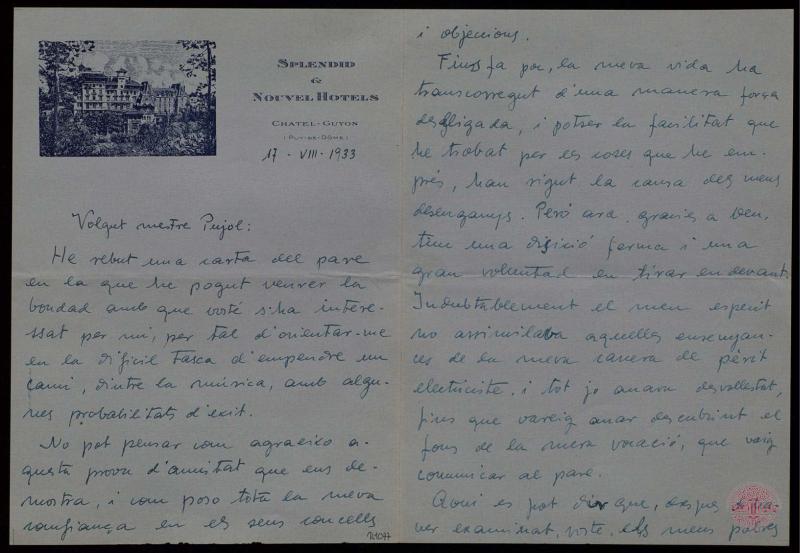 SPLENDID
&
NOUVEL HOTELS
CHATEL-GUYON
(PUY-DE-DÔME)
17 - VIII - 1933
Volgut mestre Pujol:
He rebut una carta del pare
en la que he pogut veurer la
bondad amb que vosté s'ha inter-
essat per mi, per tal d'orientar-me
en la dificil tasca d'empendre un
camí, dintre la música, amb algu-
nes probabilitats d'exit.
No pot pensar com agraeixo a-
questa prova d'amistat que ens de-
mostra, i com poso tota la meva
confiança en els seus concells
i objeccions.
Fins fa poc, la meva vida ha
transcorregut d'una manera força
deslligada, i potser la facilitat que
he trobat per les coses que he em-
prés, han sigut la causa dels meus
desenganys. Però ara, gracies a Deu,
tinc una ferma i una
gran voluntad en tirar en devant.
Indubtablement el meu esperit
no assimilava aquelles ensenyan-
ces de la meva carrera de périt
electriciste, i tot jo anava desvallestat,
fins que vareig anar descubrint el
fons de la meva vocació, que vaig
comunicar al pare.
Aquí es pot dir que, despres
ver examinat, vosté, els meus pobres